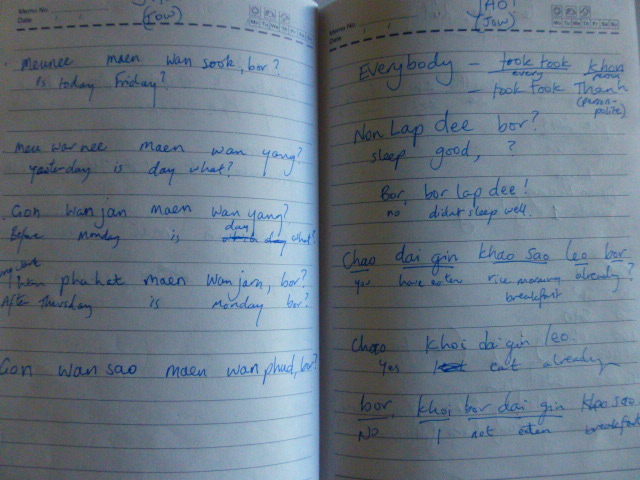 (JOW)
Memo No.
Date
Mo Tu We Th Fr Sa Su
Meunee maen wan sook, bor?
is today Friday?
Meu war nee maen wan yang?
yesterday is day what?
Gon wan jan maen wan yang?
day
Before Monday is what?
wan phahat maen wan jarn, bor?
After Thursday is monday bor?
Gon wan sao maen wan phud, bor?
JAO!
(JOW)
Memo No.
Date
Mo Tu We Th Fr Sa Su
Everybody - took took khon
every
- took took Thanh
(person - polite)
Non Lap dee bor?
sleep good, ?
Bor, bor lap dee!
no didnt sleep well.
Chao dai gin khao sao leo bor
you have eaten rice morning already?
breakfast
Chao khoi dai gin leo.
Yes I eat already
bor, khoi bor dai gin khao sao
No I not eaten breakfast